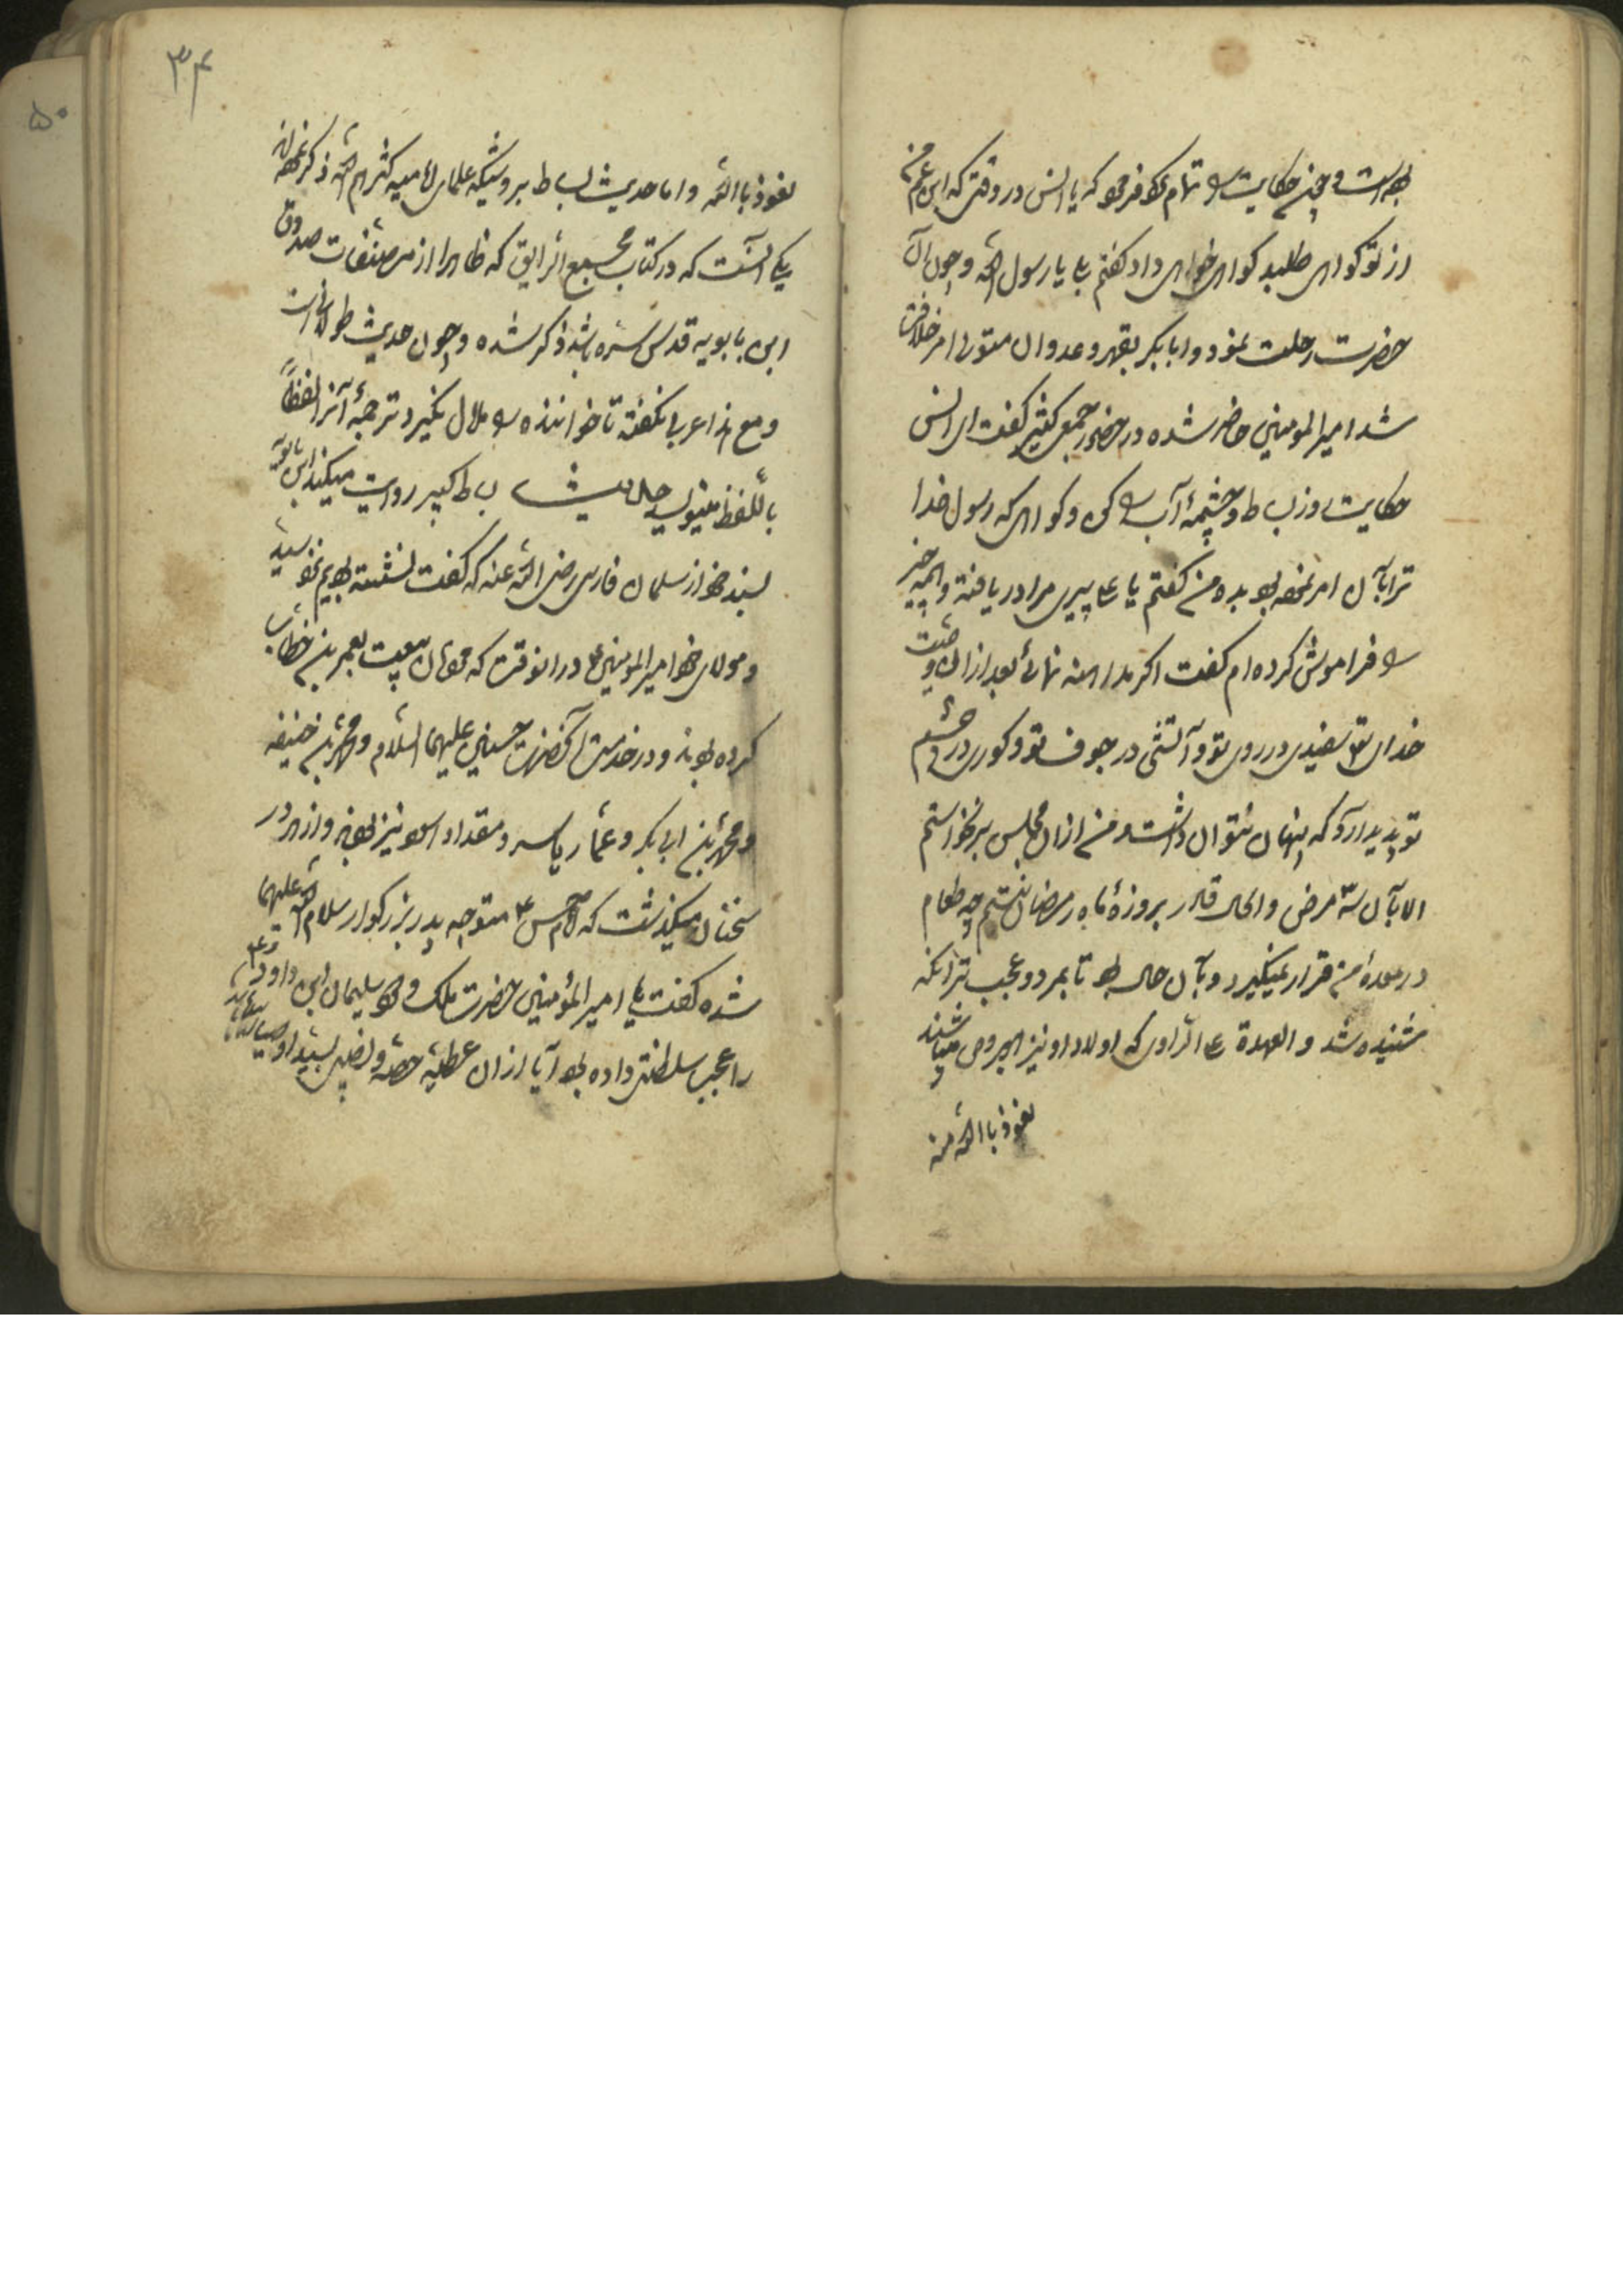 بوده است و چون حکایت را تمام نمود فرمود که یا انس در وقتی که ابن عم من
از تو گواهی طلبد گواهی خواهی داد گفتم بلی یا رسول الله و چون آن
حضرت رحلت نمود و ابا بکر بقهر و عدوان متولی امر خلافت
شد امیر المومنین حاضر شده در حضور جمع کثیر گفت ای انس
حکایت روز بساط و چشمهٔ آب را کن و گواهی که رسول خدا
ترا بآن امر نموده بود بده من گفتم یا علی پیری مرا دریافته و همه چیز
را فراموش کرده ام گفت اگر مداهنه نمائی بعد از آن وصیت
خدای تعالی سفیدی در روی تو و آتشی در جوف تو و کوری در چشم
تو پدید آرد که پنهان نتوان داشت و من از آن مجلس برنخواستم
الا بآن سه مرض والحال قادر بروزهٔ ماه رمضان نیستم چه طعام
در معدهٔ من قرار نمیگیرد و بآن حال بود تا بمرد و عجب تر آنکه
شنیده شد والعهدة علی الراوی که اولاد او نیز مبروص میباشند
نعوذ بالله منه
۳۴
۵۰
نعوذ بالله و اما حدیث بساط بروشیکه علمای امامیه کثرهم الله ذکر نموده اند
یکی آنست که در کتاب مجمع الرایق که ظاهرا از مصنفات صدوق
ابن بابویه قدس سره باشد ذکر شده و چون حدیث طولانی است
و مع هذا عربی نگفته تا خواننده را ملال نگیرد ترجمهٔ آنرا لفظاً
باللفظ مینویسد حدیث بساط کبیر روایت میکند ابن بابویه
بسند خود از سلمان فارسی رضی الله عنه که گفت نشسته بودیم نزد سید
و مولای خود امیر المومنین ع در آنوقت که مردمان بیعت بعمر بن خطاب
کرده بودند و در خدمت آنحضرت حسنین علیهما السلام و محمد بن حنیفه
و محمد بن ابی بکر و عمار یاسر و مقداد اسود نیز بودند و از هر در
سخنان میگذشت که امام حسن ع متوجه پدر بزرگوار سلام الله علیهما
شده گفت یا امیر المؤمنین حضرت ملک ودود سلیمان ابن داود ع
را عجب سلطنتی داده بود آیا از آن عطیه حصه و نصیبی بسید اوصیا